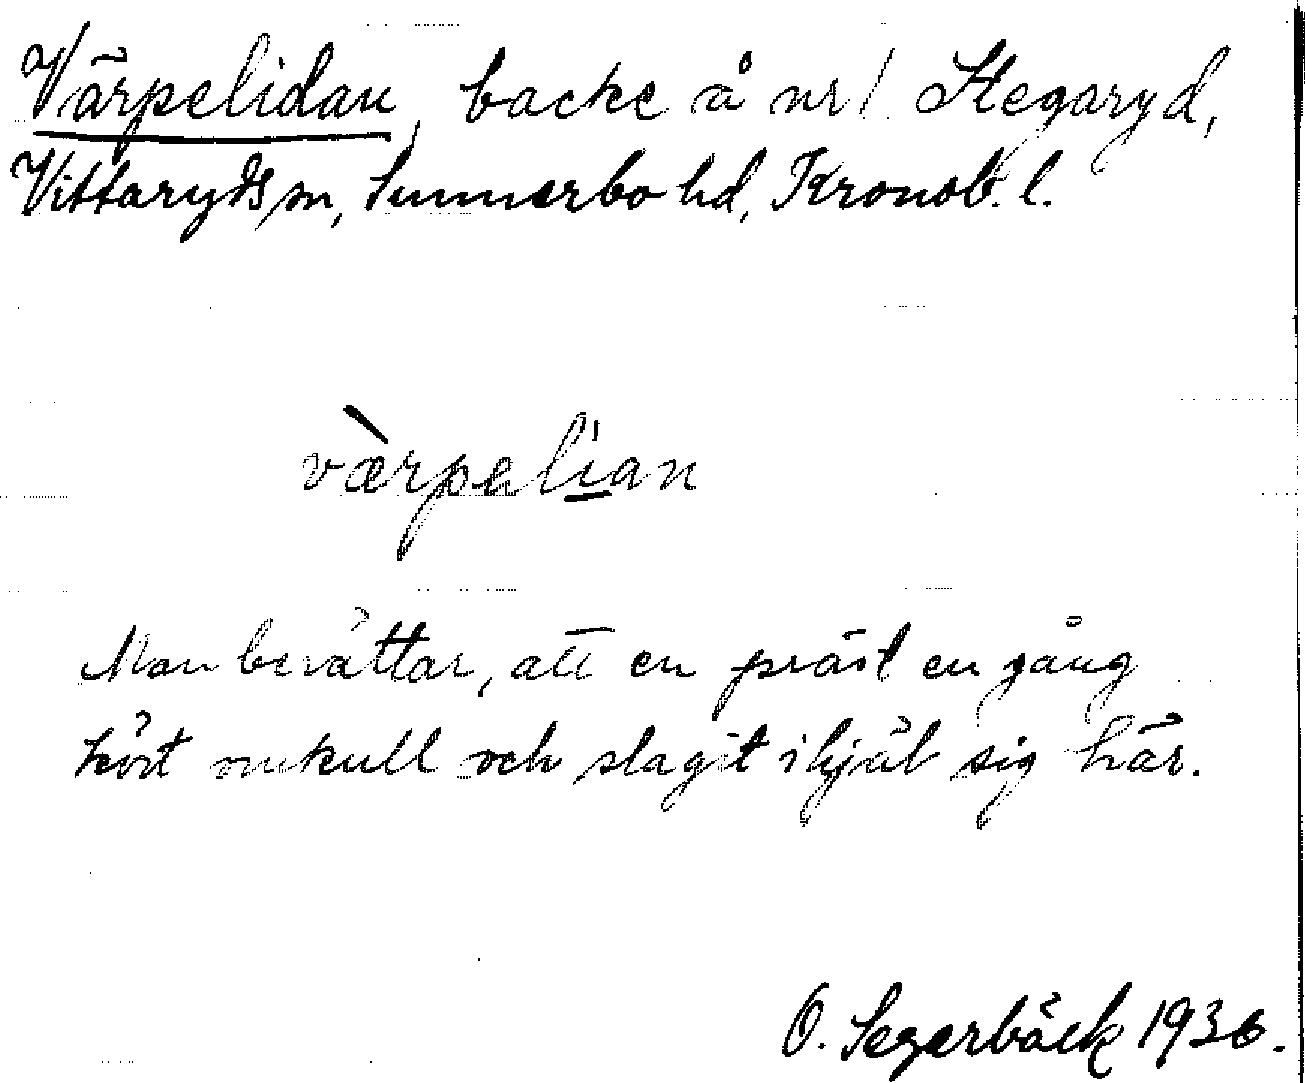 Värpelidan, backe å nr 1 Stegaryd,
Vittaryds sn, Sunnerbo hd, Kronob. l.
vàrpelian
Man berättar, att en präst en gång
kört omkull och slagit ihjäl sig här.
O. Segerbäck 1936.